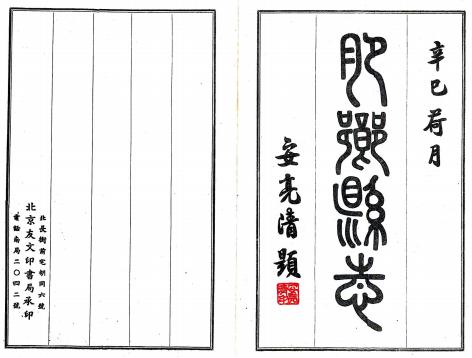 辛巳荷月
肥鄉縣志
安亮清題
北長街前宅胡同六號
北京友文印書局承印
電話南局二〇四二號